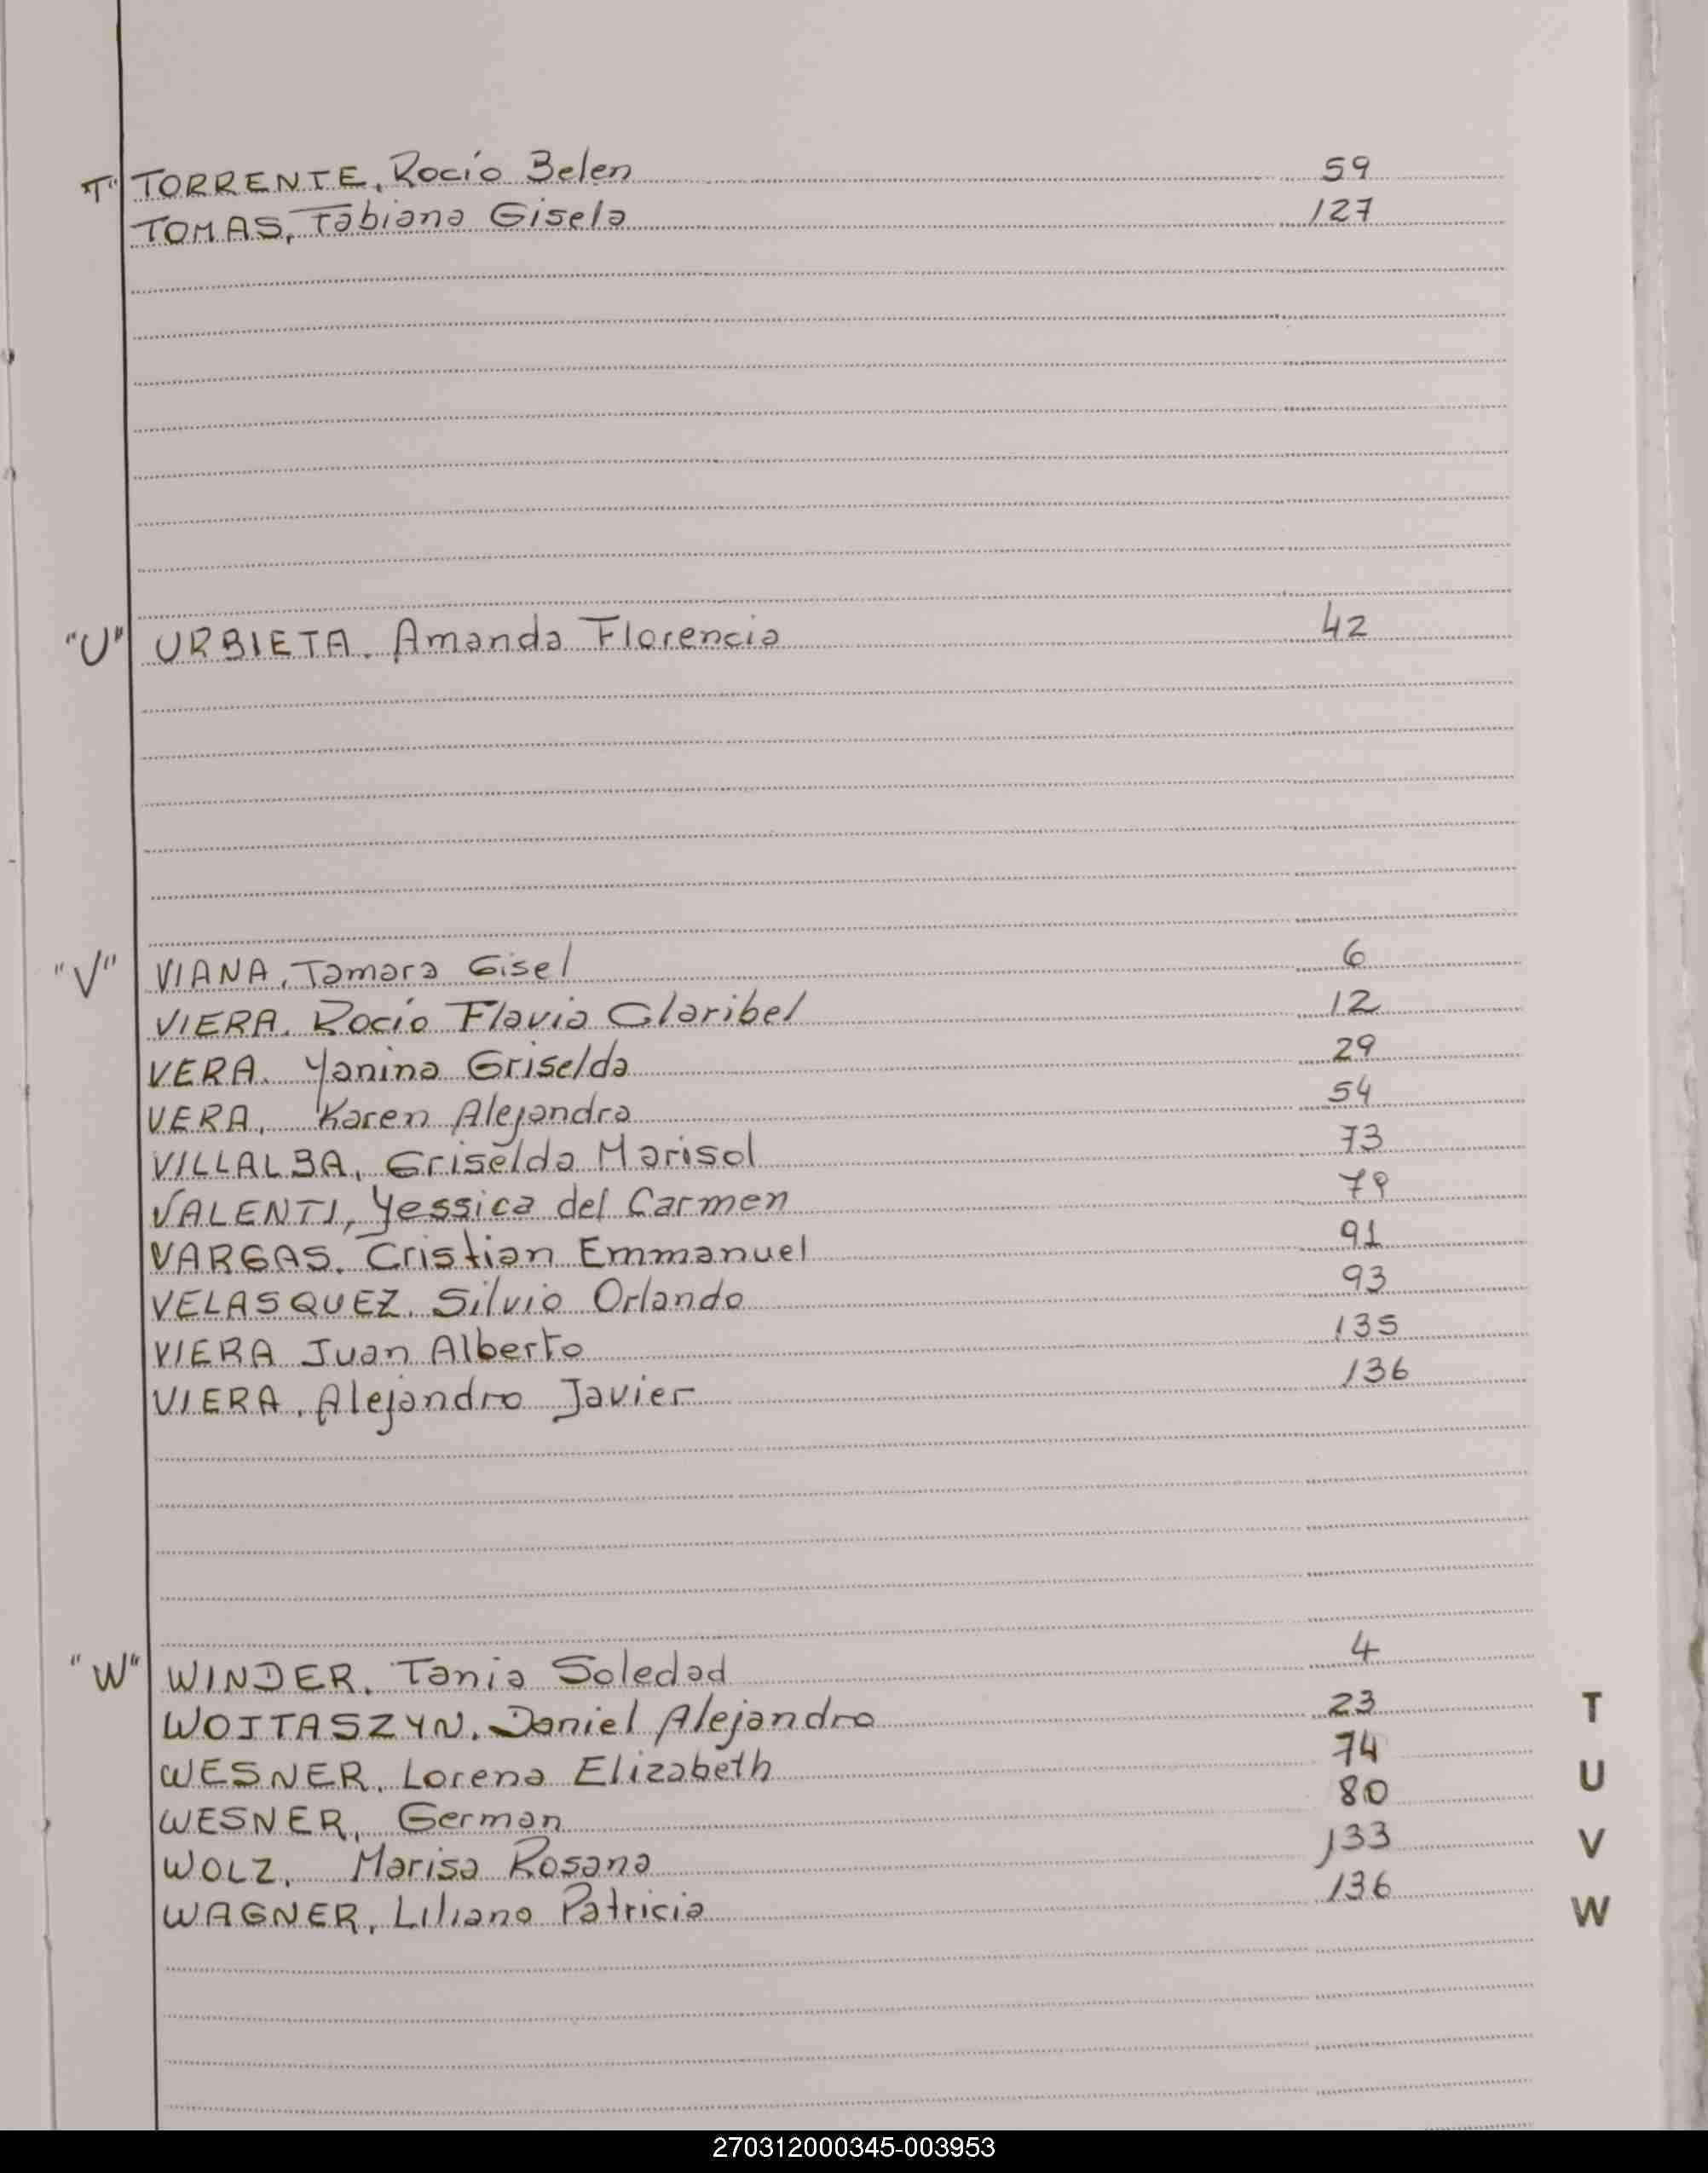 "T" TORRENTE, Rocío Belen 59
TOMAS, Fabiana Gisela 127
"U" URBIETA, Amanda Florencia 42
"V" VIANA, Tamara Gisel 6
VIERA, Rocío Flavia Claribel 12
VERA, Yanina Griselda 29
VERA, Karen Alejandra 54
VILLALBA, Griselda Marisol 73
VALENTI, Yessica del Carmen 79
VARGAS, Cristian Emmanuel 91
VELASQUEZ, Silvio Orlando 93
VIERA Juan Alberto 135
VIERA, Alejandro Javier 136
"W" WINDER, Tania Soledad 4
WOJTASZYN, Daniel Alejandro 23
WESNER, Lorena Elizabeth 74
WESNER, German 80
WOLZ, Marisa Rosana 133
WAGNER, Liliana Patricia 136
T
U
V
W
270312000345-003953